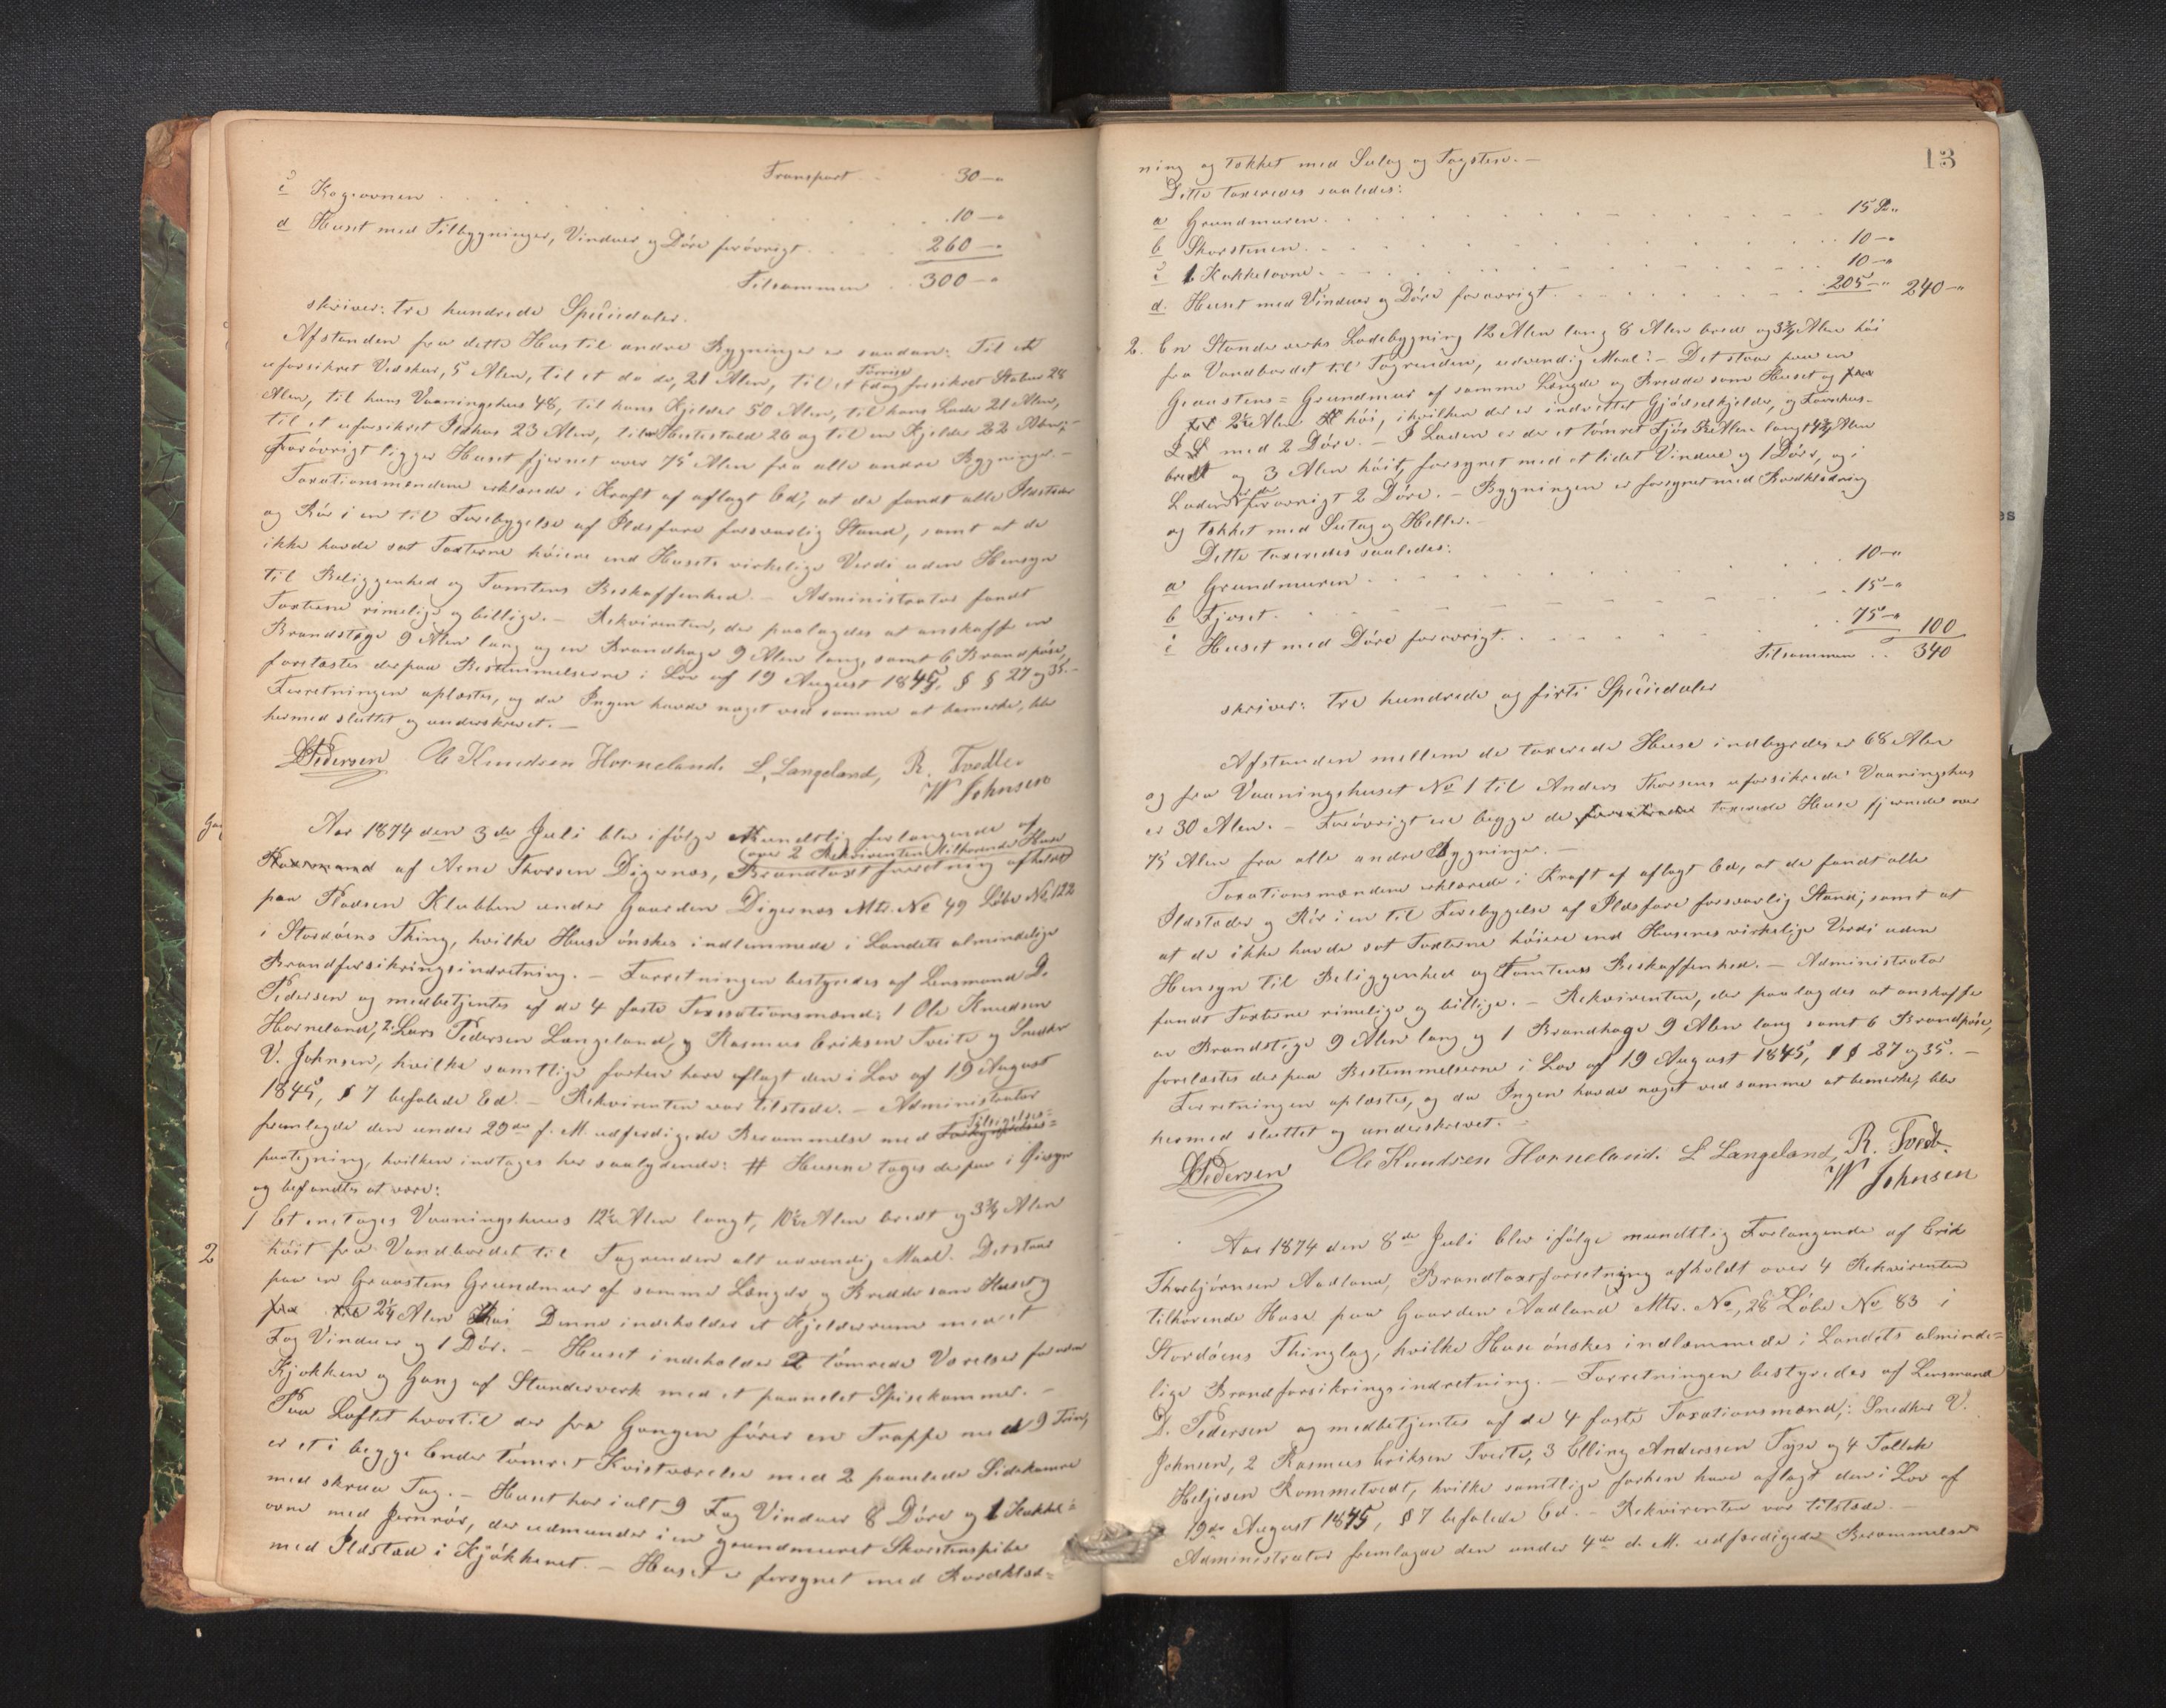 Transport . . 30 —"
c Kogeovnen . . . . . . 10 —"
d Huset med Tilbygninger, Vinduer og Døre forøvrigt . . . . 260 —"
Tilsammen . . 300 —"
skriver: tre hundrede Speciedaler.
Afstanden fra dette Hus til andre Bygninger er saadan: Til et
uforsikret Vedskur, 5 Alen, til et do do, 21 Alen, til et forsikret Stabur 28
Alen, til hans Vaaningshus 48, til hans Kjelder 50 Alen, til hans Lade 21 Alen,
til et uforsikret Ildhus 23 Alen, til Hestestald 26 og til en Kjelder 22 Alen; –
Forøvrigt ligger Huset fjernet over 75 Alen fra alle andre Bygninger. –
Taxationsmændene erklærede i Kraft af aflagt Ed, at de fandt alle Ildsteder
og Rør i en til Forebyggelse af Ildsfare forsvarlig Stand, samt at de
ikke havde sat Taxterne høiere end Husets virkelige Verdi uden Hensyn
til Beliggenhed og Tomtens Beskaffenhed. – Administrator fandt
Taxterne rimelige og billige. – Rekvirenten, der paalagdes at anskaffe en
Brandstige 9 Alen lang og en Brandhage 9 Alen lang, samt 6 Brandpøse,
forelæstes derpaa Bestemmelserne i Lov af 19 August 1845, § § 27 og 35. –
Forretningen oplæstes, og da Ingen havde noget ved samme at bemerke, blev
hermed sluttet og underskrevet. –
D Pedersen Ole Knudsen Horneland. L. Langeland, R. Tvedte
W Johnsen
Aar 1874 den 3de Juli blev ifølge Mundtlig forlangende af
af Arne Thorsen Digernæs, over 2 Rekvirenten tilhørende Huse Brandtaxtforretning afholdt
paa Pladsen Klubben under Gaarden Digernæs Mtr. No 49 Løbe No 122
i Stordøens Thing, hvilke Huse ønskes indlemmede i Landets almindelige
Brandforsikringsindretning. – Forretningen bestyredes af Lensmand D.
Pedersen og medbetjentes af de 4 faste Taxationsmænd; 1 Ole Knudsen
Horneland, 2. Lars Pedersen Langeland, og Rasmus Eriksen Tveite og Snedker
V. Johnsen, hvilke samtlige forhen have aflagt den i Lov af 19 August
1845, § 7 befalede Ed. – Rekvirenten var tilstede. – Administrator
fremlagde den under 29de f. M. udferdigede Berammelse med Tilsigelses=
paategning, hvilken indtages her saalydende: # Husene toges derpaa i Øiesyn
og befandtes at være:
1 Et eenetages Vaaningshuus 12½ Alen langt, 10½ Alen bredt og 3¾ Alen
2
høit fra Vandbordet til Tagrenden alt udvendig Maal. Det staar
paa en Graastens Grundmur af samme Længde og Bredde som Huset og
2¼ Alen høi Denne indeholder et Kjelderrum med et
Fag Vinduer og 1 Dør. – Huset indeholder 2 tømrede Værelser foruden
Kjøkken og Gang af Stenderverk med et paanelet Spisekammer. –
Paa Loftet hvortil der fra Gangen fører en Trappe med 9 Trin,
er et i begge Ender tømret Kvistværelse med 2 panelede Sidekamre
med skraa Tag. – Huset har i alt 9 Fag Vinduer 8 Døre og 1 Kakkel=
ovne med Jernrør, der udmunder i en grundmuret Skorstenspibe
med Ildsted i Kjøkkenet. – Huset er forsynet med Bordklæd=
13
ning og tekket med Sutag og Tagsten. –
Dette taxeredes saaledes:
a Grundmuren . . . . . . 15 S „
b Skorstenen . . . . . . 10 —"
c 1 Kakkelovne . . . . . . 10 —"
d. Huset med Vinduer og Døre forøvrigt . . . . . 205 —" 240 —"
2. En Stenderverks Ladebygning 12 Alen lang 8 Alen bred og 3¾ Alen høi
fra Vandbordet til Tagrenden, udvendig Maal. – Det staar paa en
Graastens= Grundmur af samme Længde og Bredde som Huset og
2½ Alen høi, i hvilken der er indrettet Gjødselkjelder, og
med 2 Døre. – I Laden er der et tømret Fjøs Alen langt 4¾ Alen
bredt og 3 Alen høit, forsynet med et lidet Vindue og 1 Dør, og i
Laden er der forøvrigt 2 Døre. – Bygningen er forsynet med Bordklædning
og tekket med Sutag og Heller. –
Dette taxeredes saaledes:
a Grundmuren . . . . . . 10 —"
b Fjøset . . . . . . 15 —"
c Huset med Døre forøvrigt . . . . . 75 —" 100
Tilsammen . . 340
skriver: tre hundrede og firti Speciedaler
Afstanden mellem de taxerede Huse indbyrdes er 68 Alen
og fra Vaaningshuset No 1 til Anders Thorsens uforsikrede Vaaningshus
er 30 Alen. – Forøvrigt ere begge de taxerede Huse fjernede over
75 Alen fra alle andre Bygninger. –
Taxationsmændene erklærede i Kraft af aflagt Ed, at de fandt alle
Ildsteder og Rør i en til Forebyggelse af Ildsfare forsvarlig Stand; samt at
at de ikke havde sat Taxterne høiere end Husenes virkelige Verdi uden
Hensyn til Beliggenhed og Tomtens Beskaffenhed. – Administrator
fandt Taxterne rimelige og billige. – Rekvirenten, der paalagdes at anskaffe
en Brandstige 9 Alen lang og 1 Brandhage 9 Alen lang samt 6 Brandpøse,
forelæstes derpaa Bestemmelserne i Lov af 19 August 1845, § § 27 og 35. –
Forretningen oplæstes, og da Ingen havde noget ved samme at bemerke, blev
hermed sluttet og underskrevet. –
D Pedersen Ole Knudsen Horneland. L Langeland, R. Tvedte
W Johnsen
Aar 1874 den 8de Juli blev ifølge mundtlig Forlangende af Erik
Thorbjørnsen Aadland, Brandtaxtforretning afholdt over 4 Rekvirenten
tilhørende Huse paa Gaarden Aadland Mtr. No, 28 Løbe No 83 i
Stordøens Thinglag, hvilke Huse ønskes indlemmede i Landets alminde=
lige Brandforsikringsindretning. – Forretningen bestyredes af Lensmand
D. Pedersen og medbetjentes af de 4 faste Taxationsmænd; Snedker V.
Johnsen, 2 Rasmus Eriksen Tveite, 3 Elling Anderssen Tyse og 4 Tollek
Heljesen Rommetvedt, hvilke samtlige forhen have aflagt den i Lov af
19de August 1845, § 7 befalede Ed. – Rekvirenten var tilstede. –
Administrator fremlagde den under 4de d. M. udferdigede Berammelse